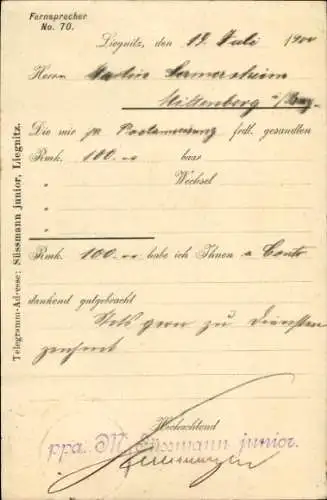 Fernsprecher
No. 70.
Liegnitz, den 19 Juli 1900
Herrn Martin
Miltenberg
Die mir pr frdl. gesandten
Rmk. 100.— baar
" Wechsel
"
"
Rmk. 100.— habe ich Ihnen a Conto
dankend gutgebracht
Stets gern zu Diensten
zeichnet
Hochachtend
ppa. M. Süssmann junior.
Telegramm-Adresse: Süssmann junior, Liegnitz.